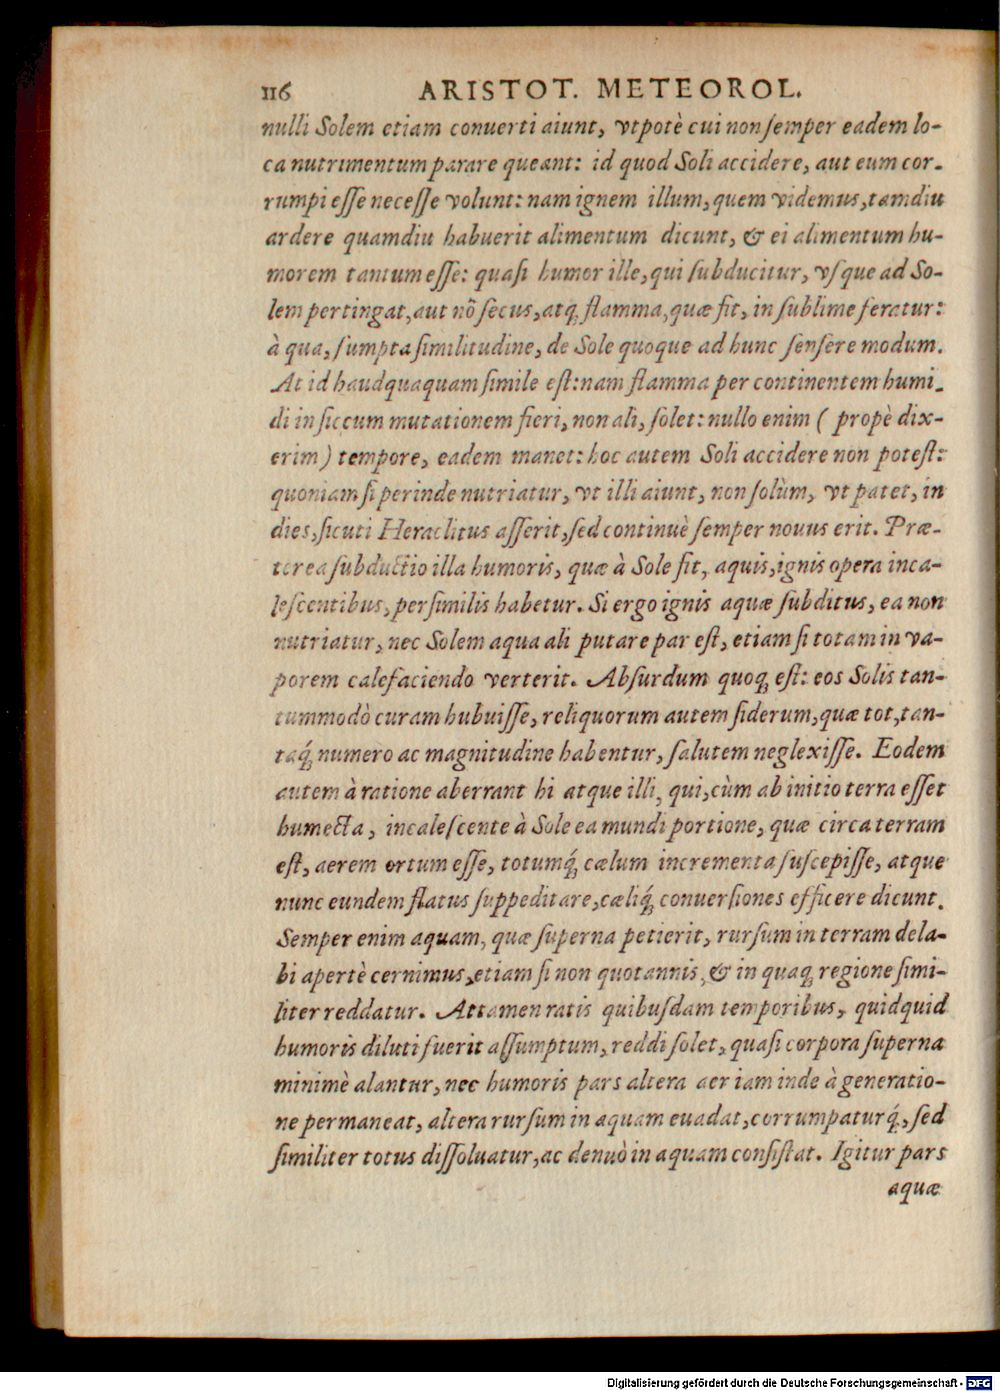 116 ARISTOT. METEOROL.
nulli Solem etiam conuerti aiunt, vtpotè cui non semper eadem lo-
ca nutrimentum parare queant: id quod Soli accidere, aut eum cor-
rumpi esse necesse volunt: nam ignem illum, quem videmus, tamdiu
ardere quamdiu habuerit alimentum dicunt, & ei alimentum hu-
morem tantum esse: quasi humor ille, qui subducitur, vsque ad So-
lem pertingat, aut nō secus, atq; flamma, quæ fit, in sublime feratur:
à qua, sumpta similitudine, de Sole quoque ad hunc sensere modum.
At id haudquaquam simile est: nam flamma per continentem humi-
di in siccum mutationem fieri, non ali, solet: nullo enim ( propè dix-
erim) tempore, eadem manet: hoc autem Soli accidere non potest:
quoniam si perinde nutriatur, vt illi aiunt, non solùm, vt patet, in
dies, sicuti Heraclitus asserit, sed continuè semper nouus erit. Præ-
terea subductio illa humoris, quæ à Sole fit, aquis, ignis opera inca-
lescentibus, persimilis habetur. Si ergo ignis aquæ subditus, ea non
nutriatur, nec Solem aqua ali putare par est, etiam si totam in va-
porem calefaciendo verterit. Absurdum quoq; est: eos Solis tan-
tummodò curam hubuisse, reliquorum autem siderum, quæ tot, tan-
taq́; numero ac magnitudine habentur, salutem neglexisse. Eodem
autem à ratione aberrant hi atque illi, qui, cùm ab initio terra esset
humecta, incalescente à Sole ea mundi portione, quæ circa terram
est, aerem ortum esse, totumq́; cælum incrementa suscepisse, atque
nunc eundem flatus suppeditare, cæliq́; conuersiones efficere dicunt.
Semper enim aquam, quæ superna petierit, rursum in terram dela-
bi apertè cernimus, etiam si non quotannis, & in quaq; regione simi-
liter reddatur. Attamen ratis quibusdam temporibus, quidquid
humoris diluti fuerit assumptum, reddi solet, quasi corpora superna
minimè alantur, nec humoris pars altera aer iam inde à generatio-
ne permaneat, altera rursum in aquam euadat, corrumpaturq́;, sed
similiter totus dissoluatur, ac denuò in aquam consistat. Igitur pars
aquæ
Digitalisierung gefördert durch die Deutsche Forschungsgemeinschaft - DFG